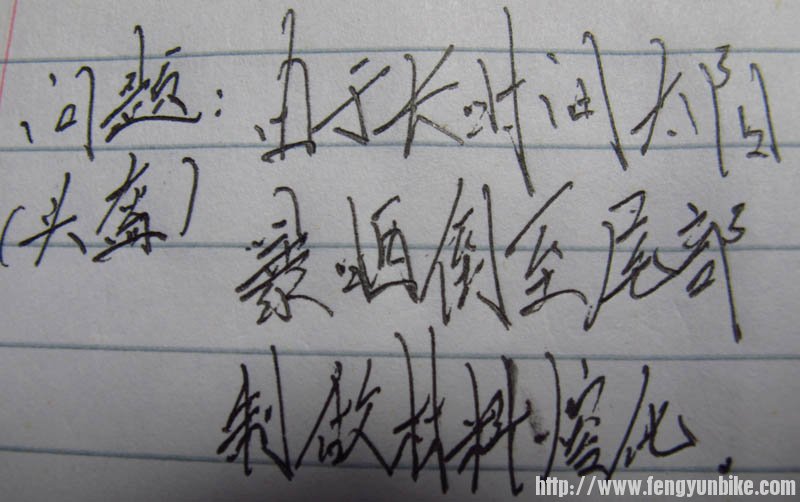 问题：由于长时间太阳
(头盔) 暴晒倒至尾部
制做材料溶化.
http://www.fengyunbike.com